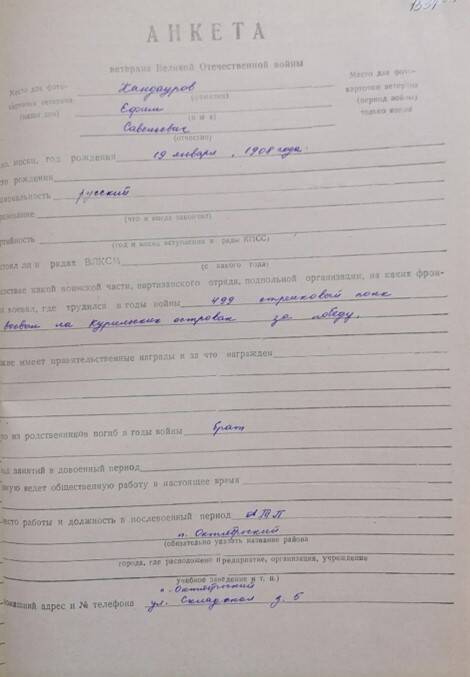 АНКЕТА
ветерана Великой Отечественной войны
Место для фото-
карточки ветерана
(наши дни)
Хандауров
(фамилия)
Ефим
(имя)
Савельевич
(отчество)
Место для фото-
карточки ветерана
(период войны)
только копия
сло, месяц, год рождения 19 января, 1908 года.
сто рождения
циональность русский
разование
(что и когда закончил)
ртийность
(год и месяц вступления в ряды КПСС)
стоял ли в рядах ВЛКСМ
(с какого года)
составе какой воинской части, партизанского отряда, подпольной организации, на каких фрон-
воевал, где трудился в годы войны 499 стрелковый полк
воевал на Курильских островах за победу.
кие имеет правительственные награды и за что награжден
то из родственников погиб в годы войны брат
од занятий в довоенный период
акую ведет общественную работу в настоящее время
есто работы и должность в послевоенный период АТП
п. Октябрьский
(обязательно указать название района
города, где расположено предприятие, организация, учреждение
учебное заведение и т. п.)
п. Октябрьский
омашний адрес и № телефона ул. Складская д. 6